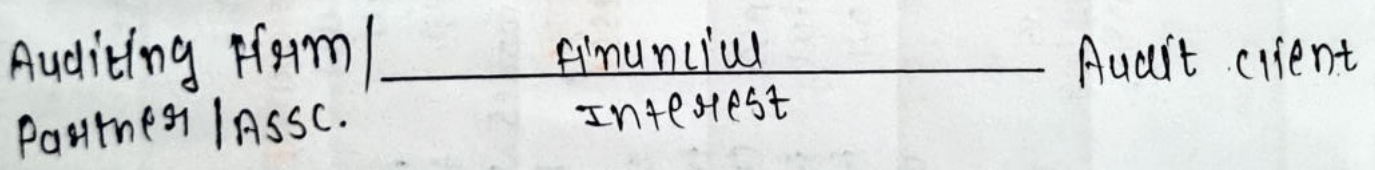 Auditing Firm/ Financial Audit client
Partner/Assc. Interest